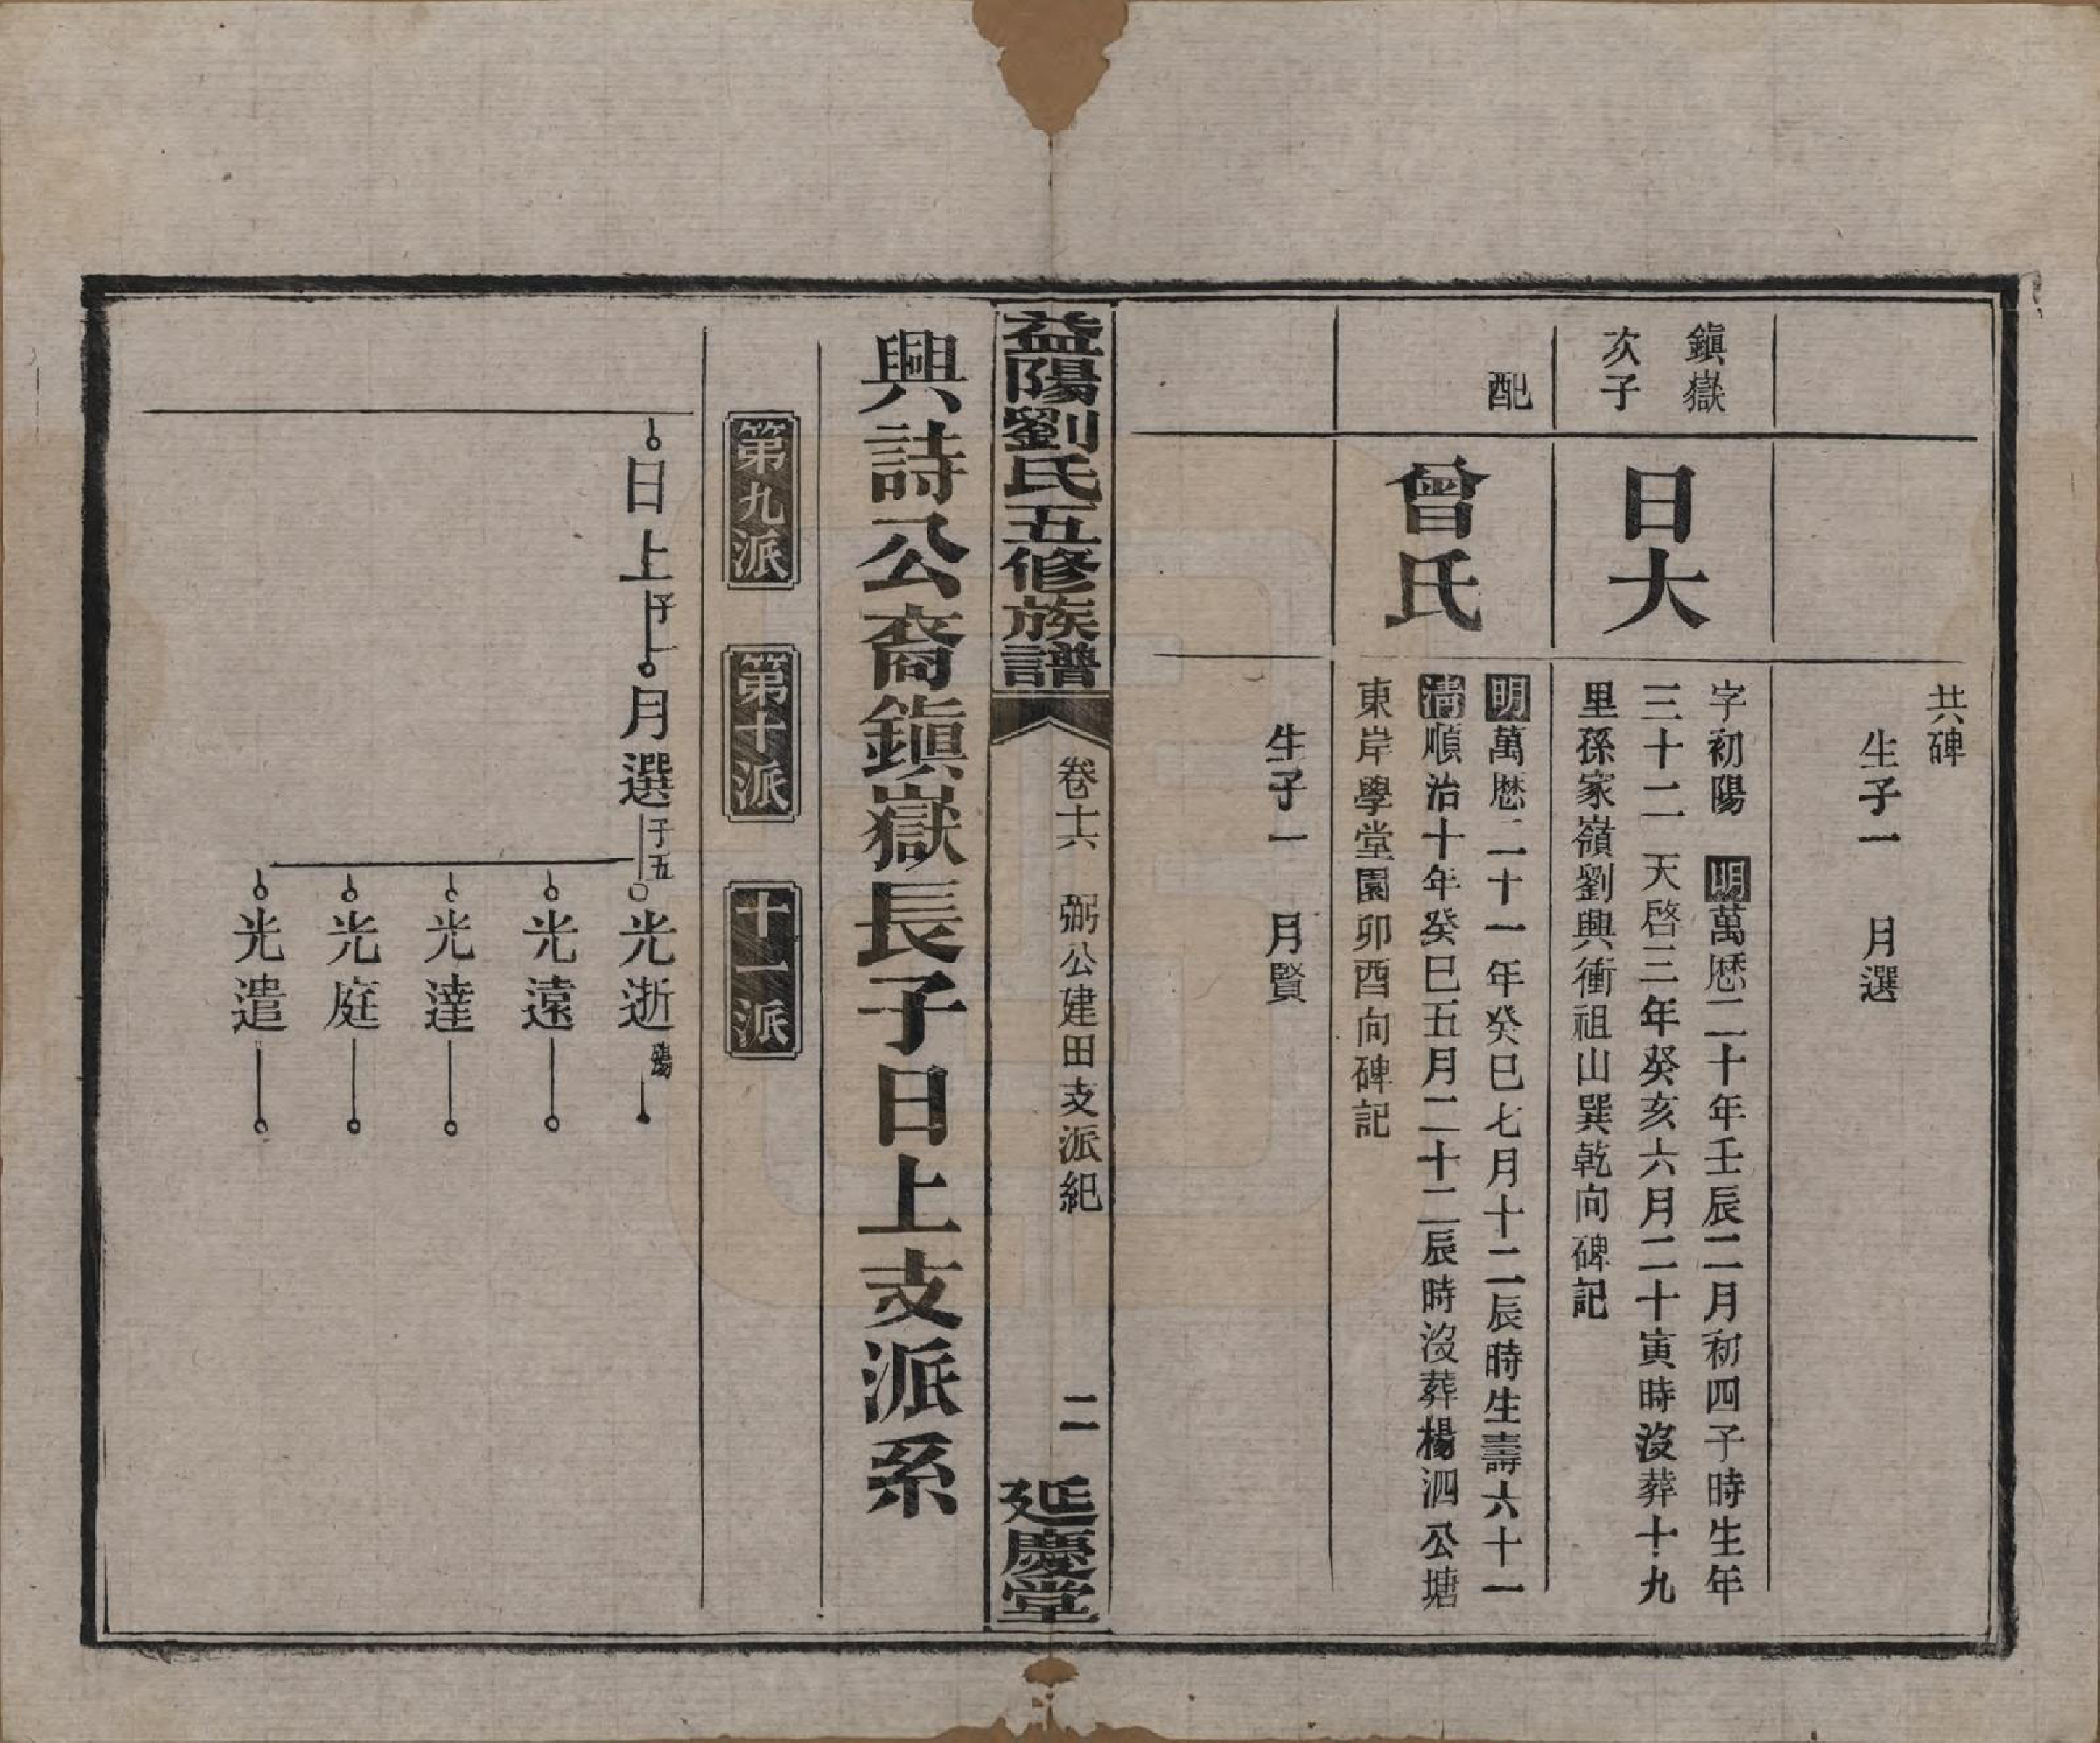 共碑
生子一　月選
鎮嶽
次子
日大
字初陽　明萬歷二十年壬辰二月初四子時生年
三十二天啓三年癸亥六月二十寅時沒葬十九
里孫家嶺劉興衝祖山巽乾向碑記
配
曾氏
明萬歷二十一年癸巳七月十二辰時生壽六十一
清順治十年癸巳五月二十二辰時沒葬楊泗公塘
東岸學堂園卯酉向碑記
生子一　月賢
益陽劉氏五修族譜
卷十六　弼公建田支派紀
二
延慶堂
興詩公裔鎮嶽長子日上支派系
第九派　第十派　十一派
日上　子一　月選　子五　光逝
光遠
光達
光庭
光遣